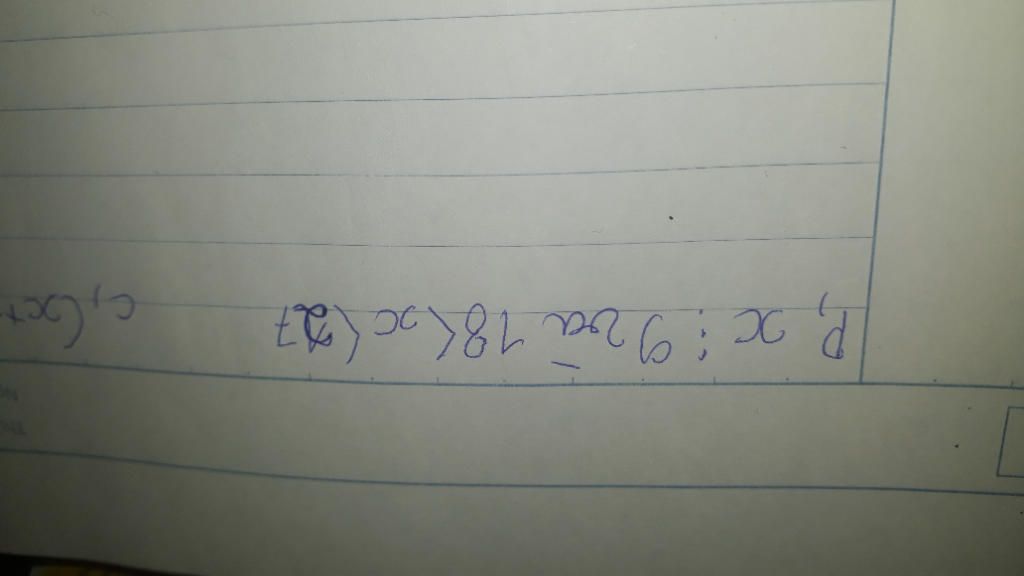 b, x ⋮ 9 và 18 < x < 27 c, (x+